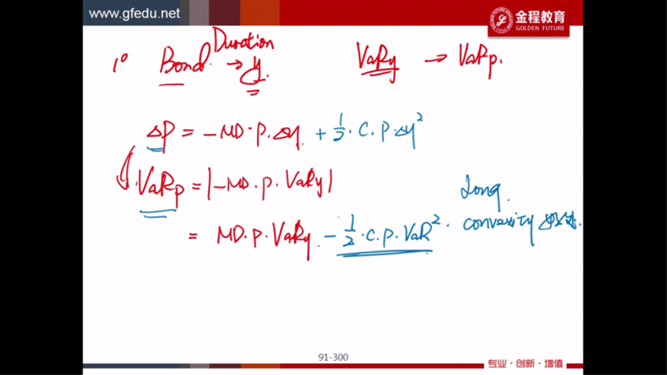 www.gfedu.net
金程教育
GOLDEN FUTURE
1° Bond → y Duration VaRy → VaRp.
ΔP = -MD·P·Δy + 1/2·C·P·Δy²
VaRp = |-MD·P·VaRy|
Long
= MD·P·VaRy - 1/2·C·P·VaR². convexity
91-300
专业·创新·增值